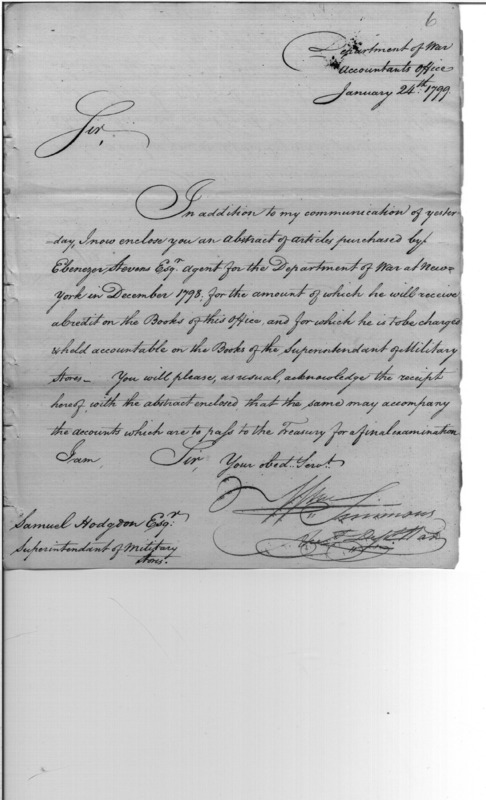 6
Department of War
Accountants Office
January 24th. 1799.
Sir,
In addition to my communication of yester
day, I now enclose you an abstract of articles purchased by
Ebenezer Stevens Esqr. Agent for the Department of War at New-
York in December 1798. for the amount of which he will receive
a Credit on the Books of this office, and for which he is to be charged
& held accountable on the Books of the Superintendant of Military
Stores— You will please, as usual, acknowledge the receipt
hereof with the abstract enclosed that the same may accompany
the accounts which are to pass to the Treasury for a final examination
I am Sir, Your obed. Servt.
Wm. Simmons
Acct. Dept. War
Samuel Hodgdon Esqr.
Superintendant of Military
Stores.